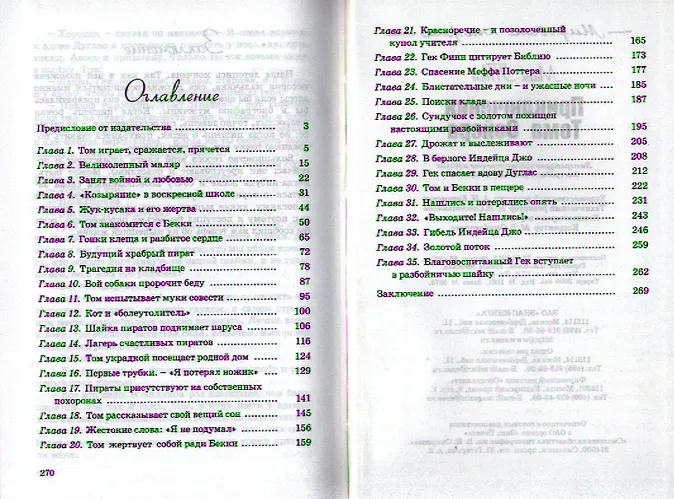 Оглавление
Предисловие от издательства 3
Глава 1. Том играет, сражается, прячется 5
Глава 2. Великолепный маляр 15
Глава 3. Занят войной и любовью 22
Глава 4. «Козыряние» в воскресной школе 31
Глава 5. Жук-кусака и его жертва 44
Глава 6. Том знакомится с Бекки 50
Глава 7. Гонки клеща и разбитое сердце 65
Глава 8. Будущий храбрый пират 72
Глава 9. Трагедия на кладбище 78
Глава 10. Вой собаки пророчит беду 87
Глава 11. Том испытывает муки совести 95
Глава 12. Кот и «болеутолитель» 100
Глава 13. Шайка пиратов поднимает паруса 106
Глава 14. Лагерь счастливых пиратов 116
Глава 15. Том украдкой посещает родной дом 124
Глава 16. Первые трубки. – «Я потерял ножик» 129
Глава 17. Пираты присутствуют на собственных
похоронах 141
Глава 18. Том рассказывает свой вещий сон 145
Глава 19. Жестокие слова: «Я не подумал» 156
Глава 20. Том жертвует собой ради Бекки 159
270
Глава 21. Красноречие – и позолоченный
купол учителя 165
Глава 22. Гек Финн цитирует Библию 173
Глава 23. Спасение Меффа Поттера 177
Глава 24. Блистательные дни – и ужасные ночи 185
Глава 25. Поиски клада 187
Глава 26. Сундучок с золотом похищен
настоящими разбойниками 195
Глава 27. Дрожат и выслеживают 205
Глава 28. В берлоге Индейца Джо 208
Глава 29. Гек спасает вдову Дуглас 212
Глава 30. Том и Бекки в пещере 222
Глава 31. Нашлись и потерялись опять 231
Глава 32. «Выходите! Нашлись!» 243
Глава 33. Гибель Индейца Джо 246
Глава 34. Золотой поток 259
Глава 35. Благовоспитанный Гек вступает
в разбойничью шайку 262
Заключение 269